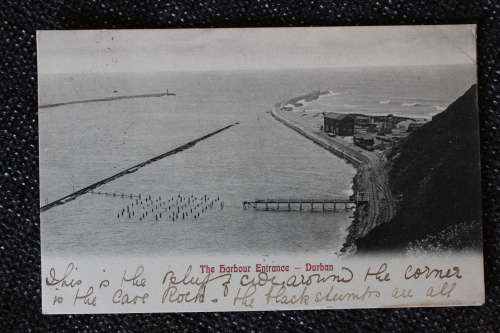 The Harbour Entrance – Durban
This is the Bluff & around the corner
is the Cave Rock. The black stumps are all